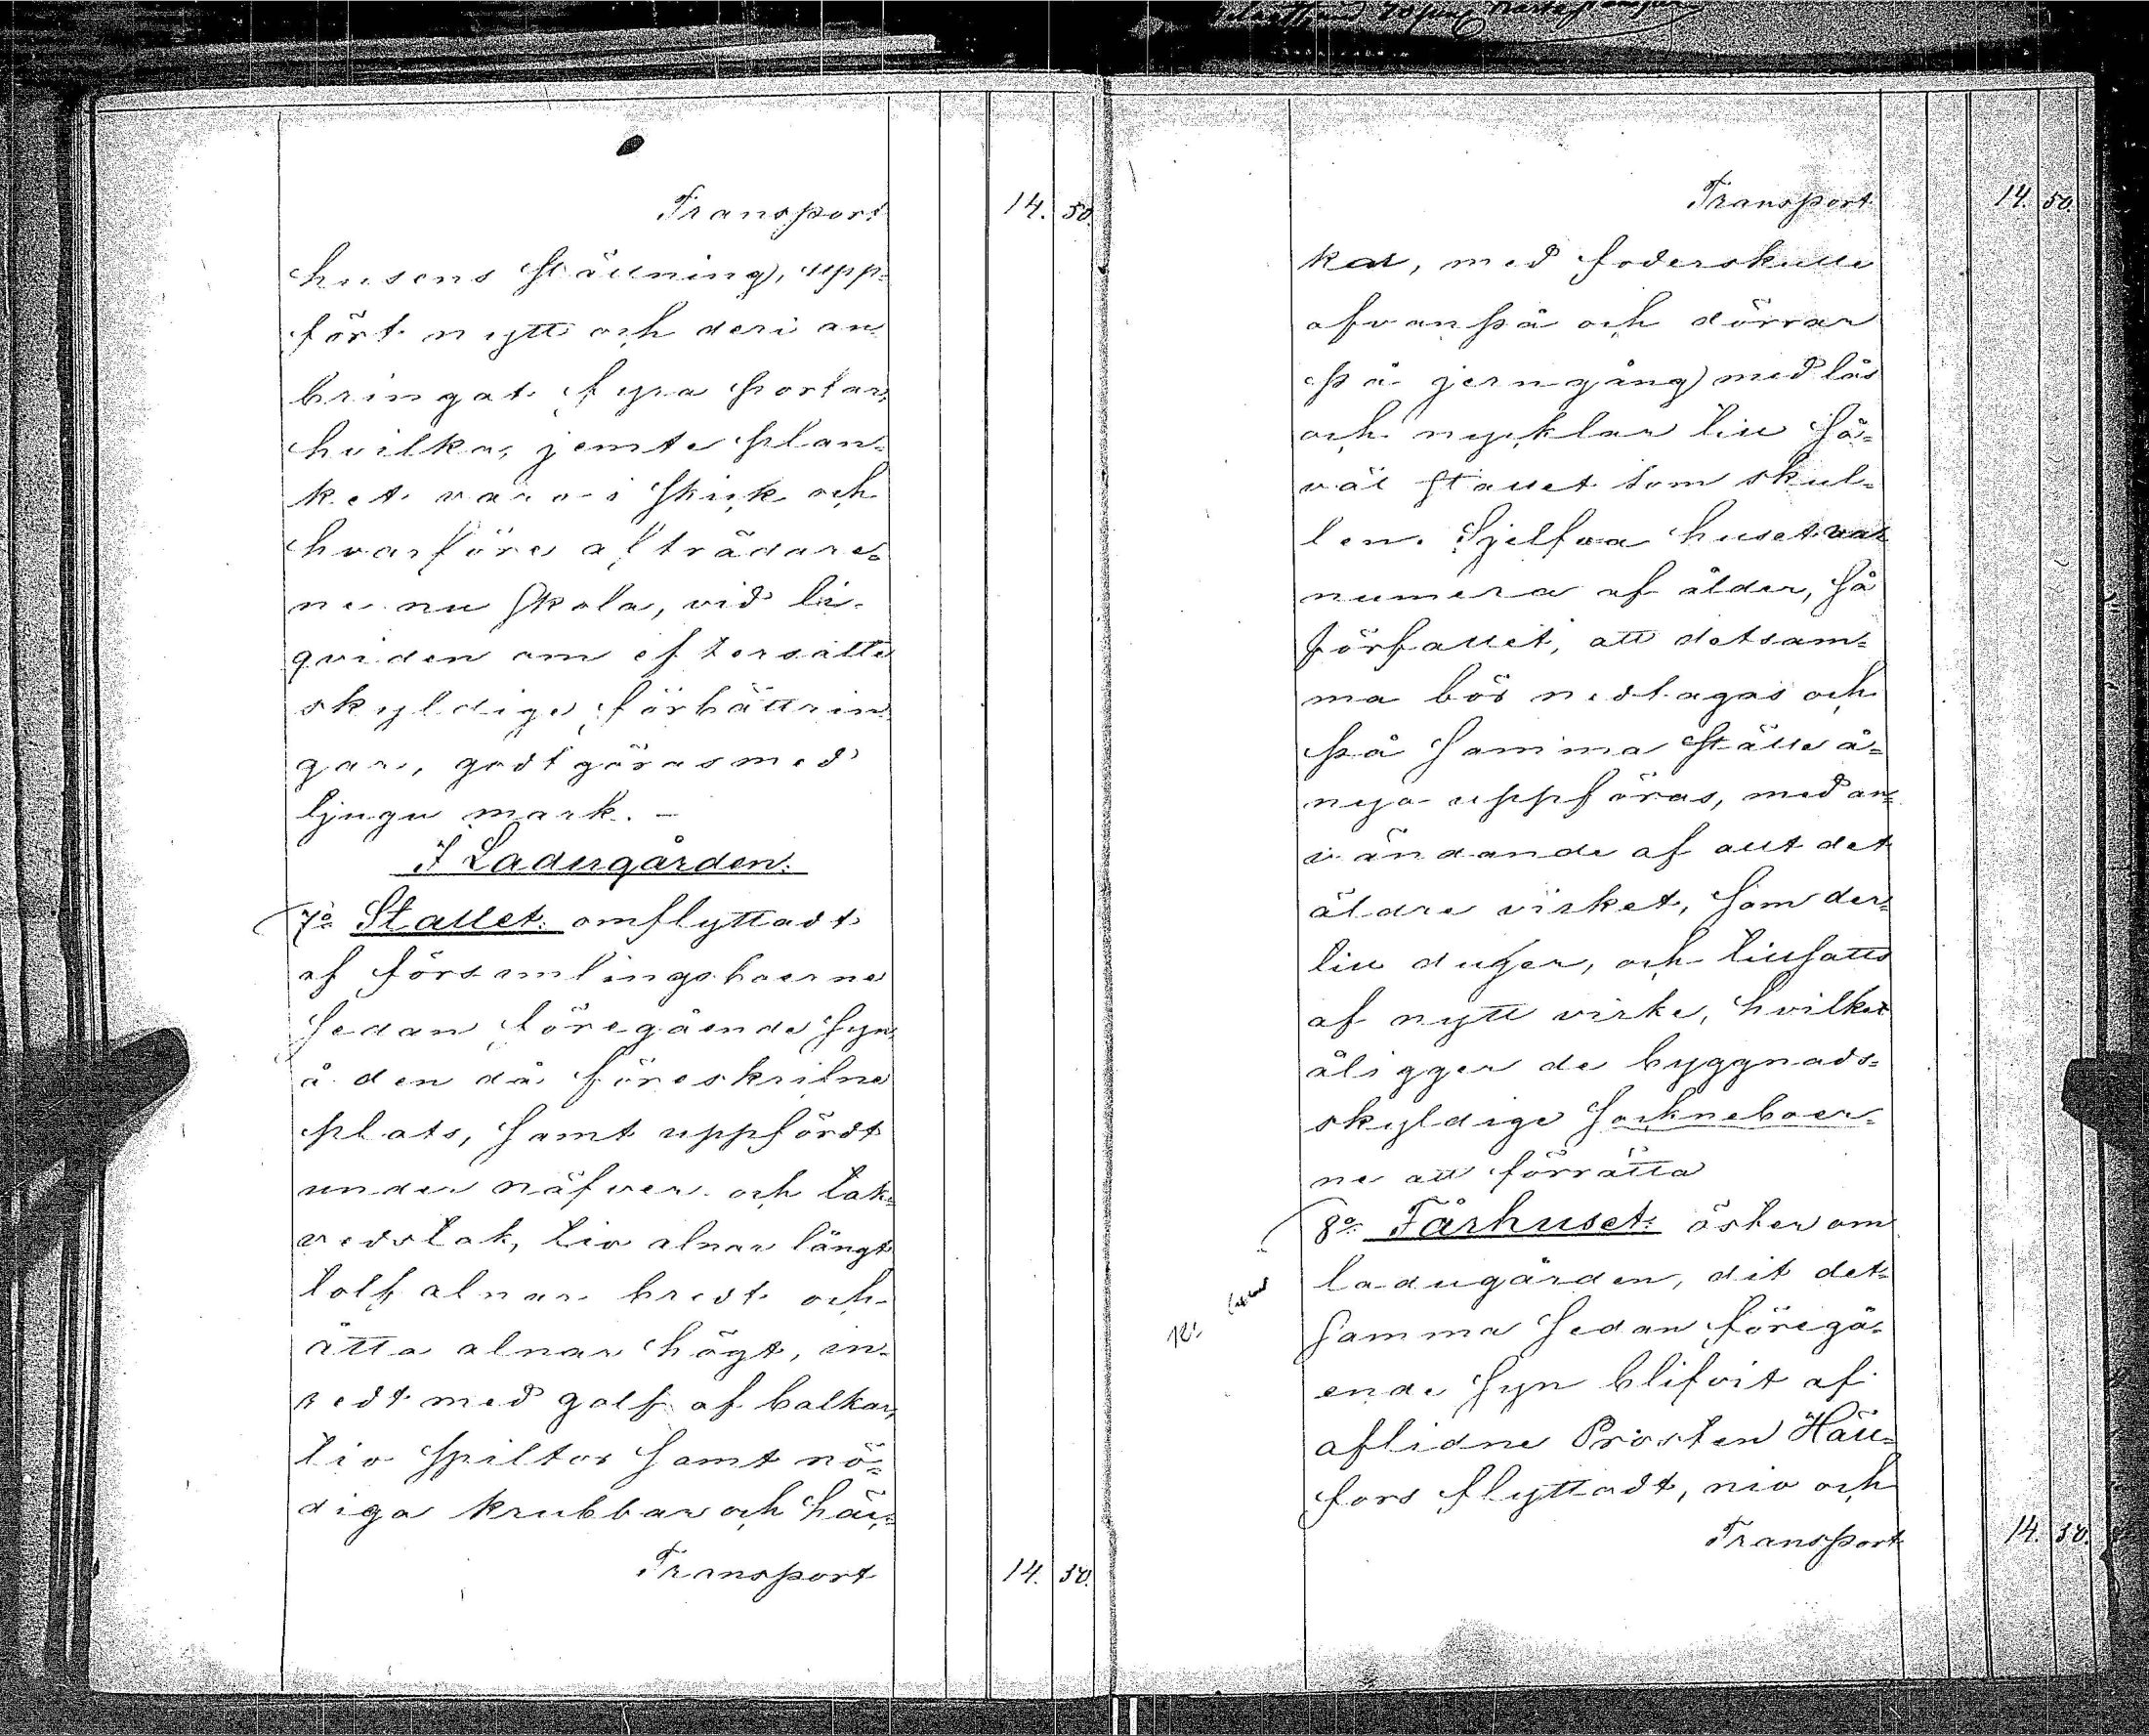 Transport 14. 50.
husens ställning, upp-
fört nytt och deri an-
bringat fyra portar,
hvilka, jemte plan-
ket voro i skick och
hvarföre afträdare-
ne nu skola, vid li-
qviden om eftersatte
skyldige förbättrin
gar, godtgöras med
tjugu mark. —
I Ladugården:
7o Stallet: omflyttadt
af församlingsboerne
sedan föregående syn,
å den då föreskrifne
plats, samt uppfördt
under näfver och tak-
vedstak, tio alnar långt
tolf alnar bredt och
åtta alnar högt, in-
redt med golf af balkar,
tio spiltor samt nö-
diga krubbar och häc-
Transport 14. 50.
Transport 14. 50.
kar, med foderskulle
ofvanpå och dörrar
på jerngång med lås
och nycklar till så-
väl stallet som skul-
len. Sjelfva huset var
numera af ålder, så
förfallet, att detsam-
ma bör nedtagas och
på samma ställe å-
nyo uppföras, med an-
vändande af allt det
äldre virket, som der-
till duger, och tillsatts
af nytt virke, hvilket
åligger de byggnads-
skyldige sockneboer-
ne att förrätta
8o Fårhuset: öster om
ladugården, dit det-
samma sedan föregå-
ende syn blifvit af
aflidne Prosten Häll-
fors flyttadt, nio och
Transport 14. 50.